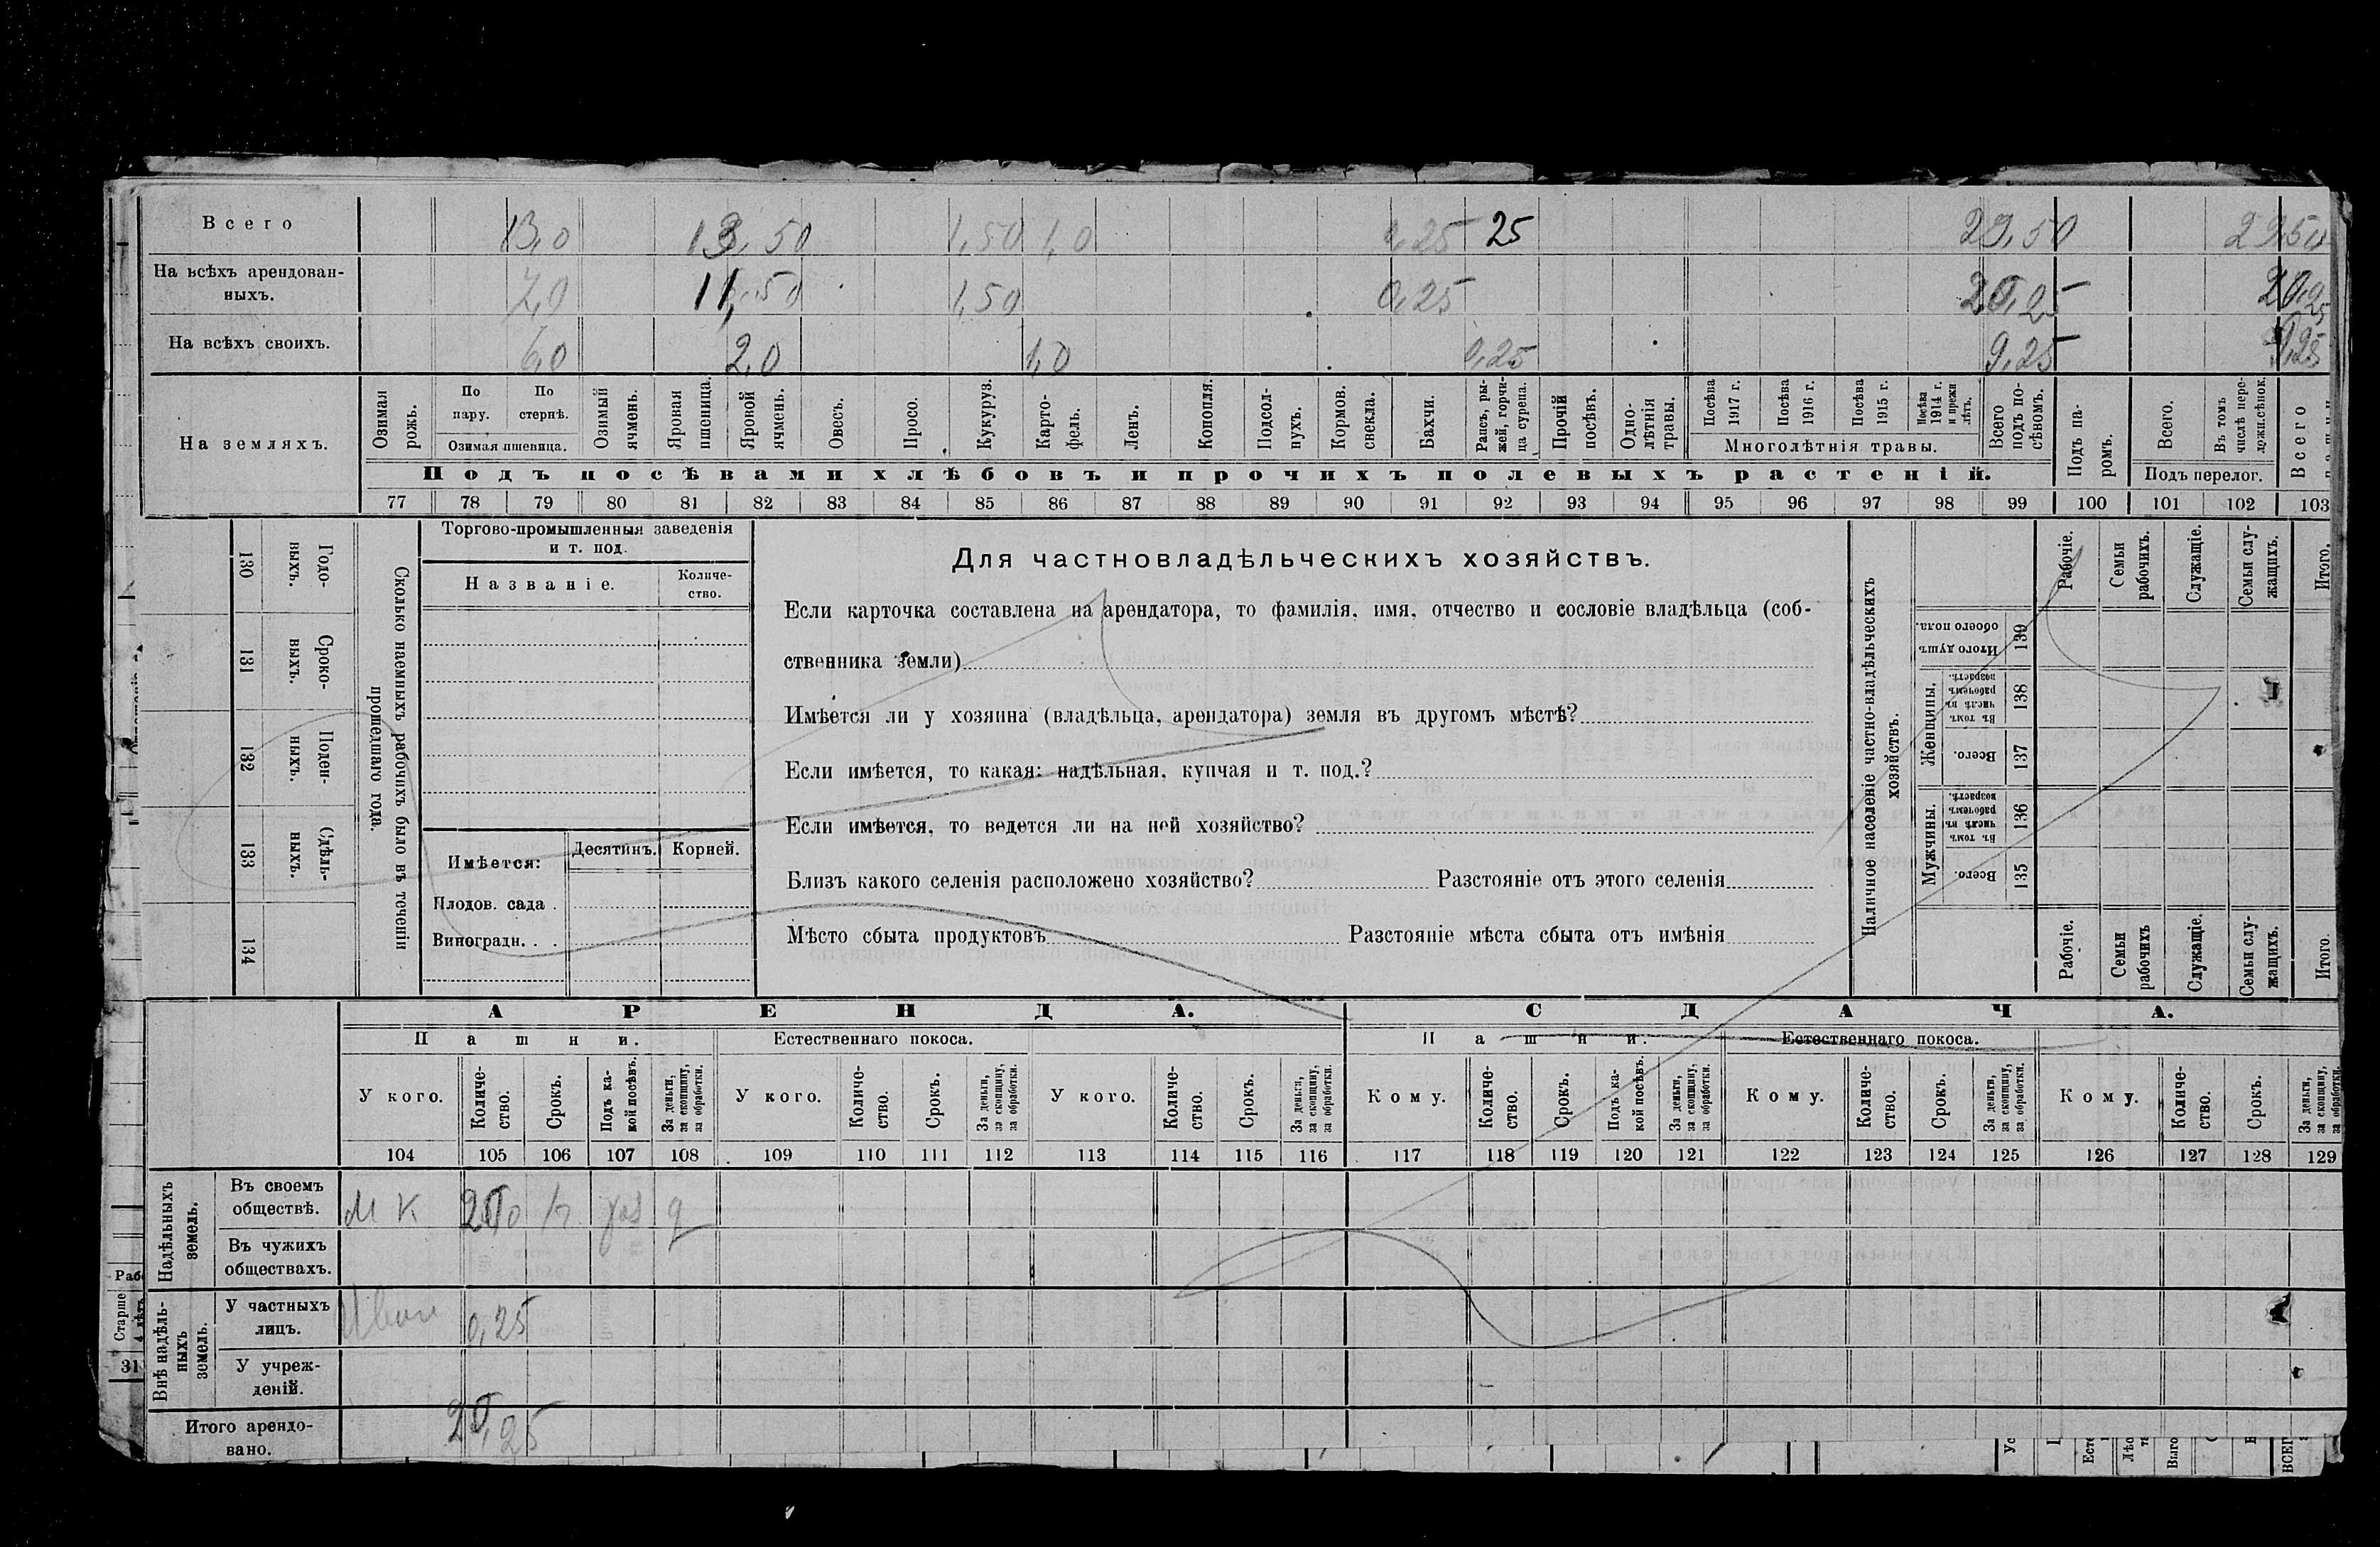 Всего 13,0 13,50 1,50 1,0 0,25 25 29,50 29,50
На всѣхъ арендован-
ныхъ. 7,0 11,50 1,50 0,25 20,25 20,25
На всѣхъ своихъ. 6,0 2,0 1,0 0,25 9,25 9,25
На земляхъ.
Озимая рожь.
По пару.
По стернѣ.
Озимая пшеница.
Озимый ячмень.
Яровая пшеница.
Яровой ячмень.
Овесъ.
Просо.
Кукуруз.
Карто-
фель.
Ленъ.
Конопля.
Подсол-
нухъ.
Кормов.
свекла.
Бахчи.
Рапсъ, ры-
жей, горчи-
ца сурепа.
Прочій
посѣвъ.
Одно-
лѣтнія
травы.
Посѣва
1917 г.
Посѣва
1916 г.
Посѣва
1915 г.
Посѣва
1914 г.
и прежн
лѣтъ.
Многолѣтнія травы.
Всего
подъ по-
сѣвомъ.
Подъ па-
ромъ.
Всего.
Въ томъ
числѣ пере-
ложн.сѣнок.
Подъ перелог.
Всего
Подъ посѣвами хлѣбовъ и прочихъ полевыхъ растеній.
77 78 79 80 81 82 83 84 85 86 87 88 89 90 91 92 93 94 95 96 97 98 99 100 101 102 103
Годо-
выхъ.
130
Сроко-
выхъ.
131
Поден-
ныхъ.
132
Сдѣль-
ныхъ.
133
134
Сколько наемныхъ рабочихъ было въ теченіи
прошедшаго года.
Торгово-промышленныя заведенія
и т. под.
Названіе.
Количе-
ство.
Имѣется:
Десятинъ.
Корней.
Плодов. сада .
Виноградн. . .
Для частновладѣльческихъ хозяйствъ.
Если карточка составлена на арендатора, то фамилія, имя, отчество и сословіе владѣльца (соб-
ственника земли)
Имѣется ли у хозяина (владѣльца, арендатора) земля въ другомъ мѣстѣ?
Если имѣется, то какая: надѣльная, купчая и т. под.?
Если имѣется, то ведется ли на ней хозяйство?
Близъ какого селенія расположено хозяйство? Разстояніе отъ этого селенія
Мѣсто сбыта продуктовъ Разстояніе мѣста сбыта отъ имѣнія
Наличное населеніе частно-владѣльческихъ
хозяйствъ.
Рабочіе.
Семьи
рабочихъ.
Служащіе.
Семьи слу-
жащихъ.
Итого.
Итого душъ
обоего пола.
139
Женщины.
Въ томъ
числѣ въ
рабочемъ
возрастѣ.
138
Всего.
137
Мужчины.
Въ томъ
числѣ въ
рабочемъ
возрастѣ.
136
Всего.
135
Рабочіе.
Семьи
рабочихъ
Служащіе.
Семьи слу-
жащихъ.
Итого.
АРЕНДА. СДАЧА.
Пашни. Естественнаго покоса. Пашни. Естественнаго покоса.
У кого.
Количе-
ство.
Срокъ.
Подъ ка-
кой посѣвъ.
За деньги,
за скопщину,
за обработки.
У кого.
Количе-
ство.
Срокъ.
За деньги,
за скопщину,
за обработки.
У кого.
Количе-
ство.
Срокъ.
За деньги,
за скопщину,
за обработки.
Кому.
Количе-
ство.
Срокъ.
Подъ ка-
кой посѣвъ.
За деньги,
за скопщину,
за обработки.
Кому.
Количе-
ство.
Срокъ.
За деньги,
за скопщину,
за обработки.
Кому.
Количе-
ство.
Срокъ.
За деньги,
за скопщину,
за обработки.
104 105 106 107 108 109 110 111 112 113 114 115 116 117 118 119 120 121 122 123 124 125 126 127 128 129
Надѣльныхъ
земель.
Въ своемъ
обществѣ.
М К
Въ чужихъ
обществахъ.
Внѣ надѣль-
ныхъ
земель.
У частныхъ
лицъ.
0,25
У учреж-
деній.
Итого арендо-
вано.
20,25
Раб
Старше
31